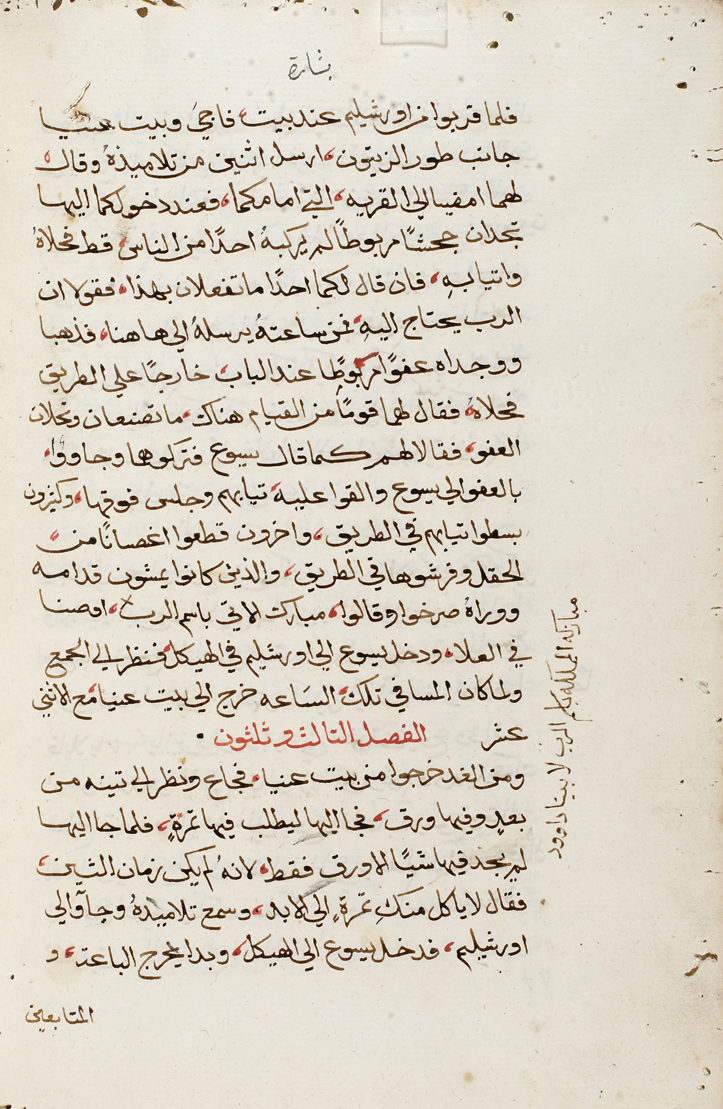 بشارة
فلما قربوا من اورشليم عند بيت فاجي وبيت عنيا
جانب طور الزيتون، ارسل اثنين من تلاميذهُ وقال
لهما امضيا الي القريه، التي امامكما، فعند دخولكما اليها
تجدان جحشًا مربوطاً لم يركبهُ احدًا من الناس قط فحلاهُ
واتيا بهِ، فان قال لكما احدًا ما تفعلان بهذا، فقولا ان
الرب يحتاج اليهِ، فمن ساعتهُ يرسلهُ الي هاهنا، فذهبا
ووجداه عفوًا مربوطًا عند الباب، خارجًا علي الطريق
فحلاهُ، فقال لهما قومًا من القيام هناك، ما تصنعان وتحلان
العفو، فقالا لهم كما قال يسوع فتركوهما وجاووا،
بالعفو الي يسوع والقوا عليه تيابهم وجلس فوقها، وكثيرون
بسطوا تيابهم في الطريق، واخرون قطعوا اغصانًا من
الحقل وفرشوها في الطريق، والذين كانوا يمشون قدامه
ووراهُ صرخوا وقالوا، مبارك الاتي باسم الرب، اوصنا
في العلا، ودخل يسوع الي اورشليم في الهيكل فنظر الي الجمع
ولما كان المسا في تلك الساعه خرج الي بيت عنيا مع الاثني
عشر الفصل التالت وثلثون
ومن الغد خرجوا من بيت عنيا، فجاع ونظر الي تينه من
بعدٍ وفيها ورق، فجا اليها ليطلب فيها ثمرةٍ، فلما جا اليها
لم يجد فيها شيًا الا ورق فقط، لانهُ لم يكن زمان التين،
فقال لا ياكل منكِ ثمرةٍ الي الابد، وسمع تلاميذهُ وجآوا الي
اورشليم، فدخل يسوع الي الهيكل، وبدا يخرج الباعة، و
المتابعين
مباركه المملكه باسم الرب لابينا داوود